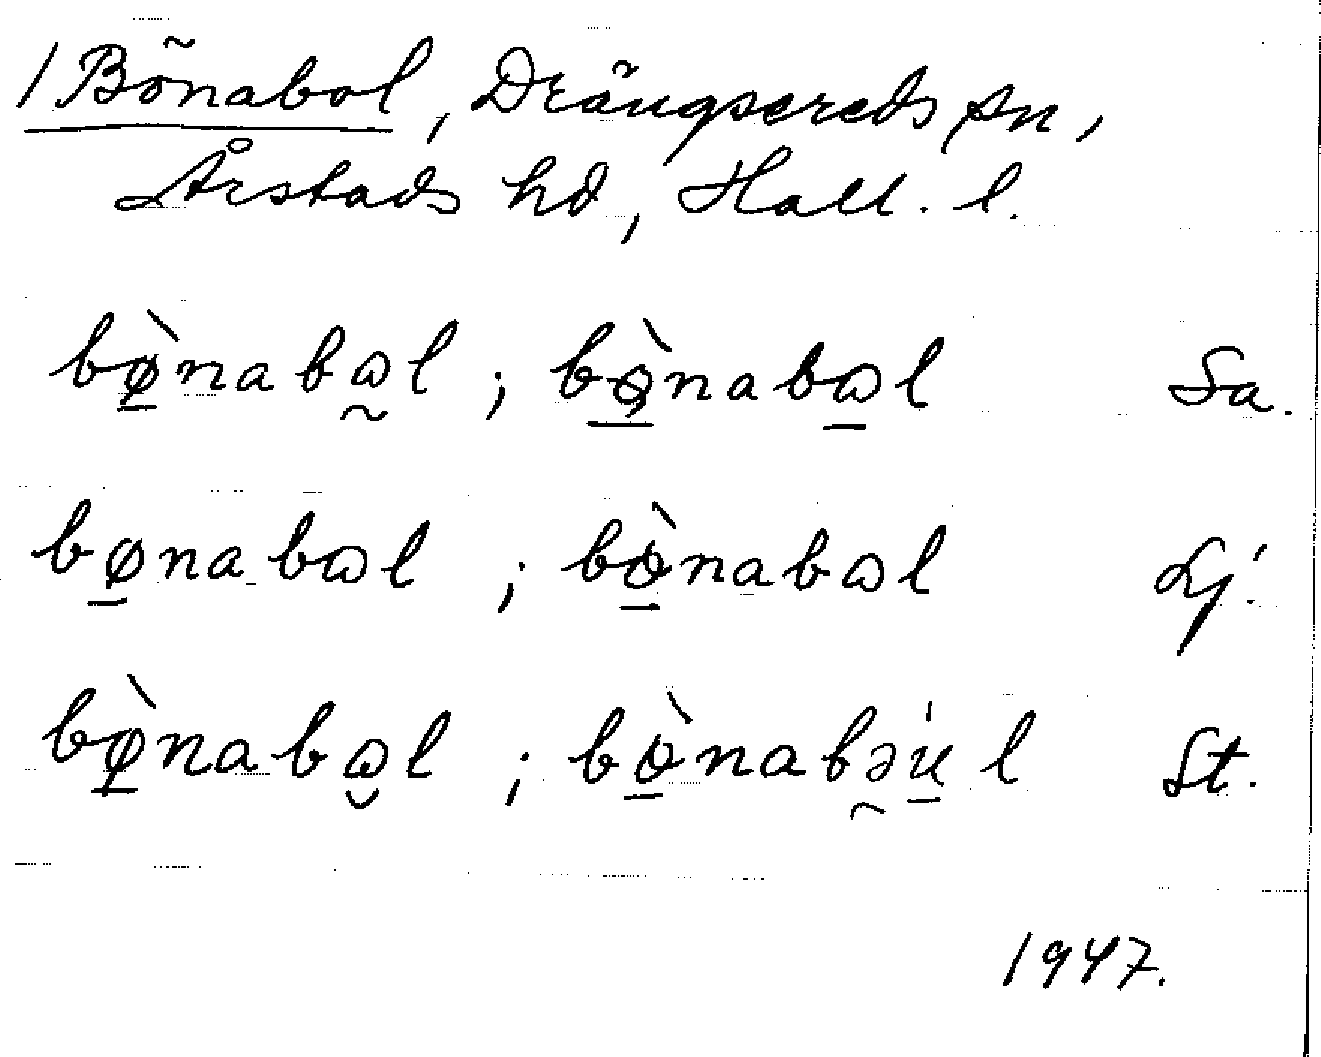 / Bönabol, Drängsereds sn,
Årstads hd, Hall. l.
bø̱̀nabɷ̰l ; bò̱nabɷ̱l Sa.
bø̱nabɷl ; bò̱nabɷl Lj.
bø̱̀nabɷ̮l ; bò̱nabəu̱l St.
1947.